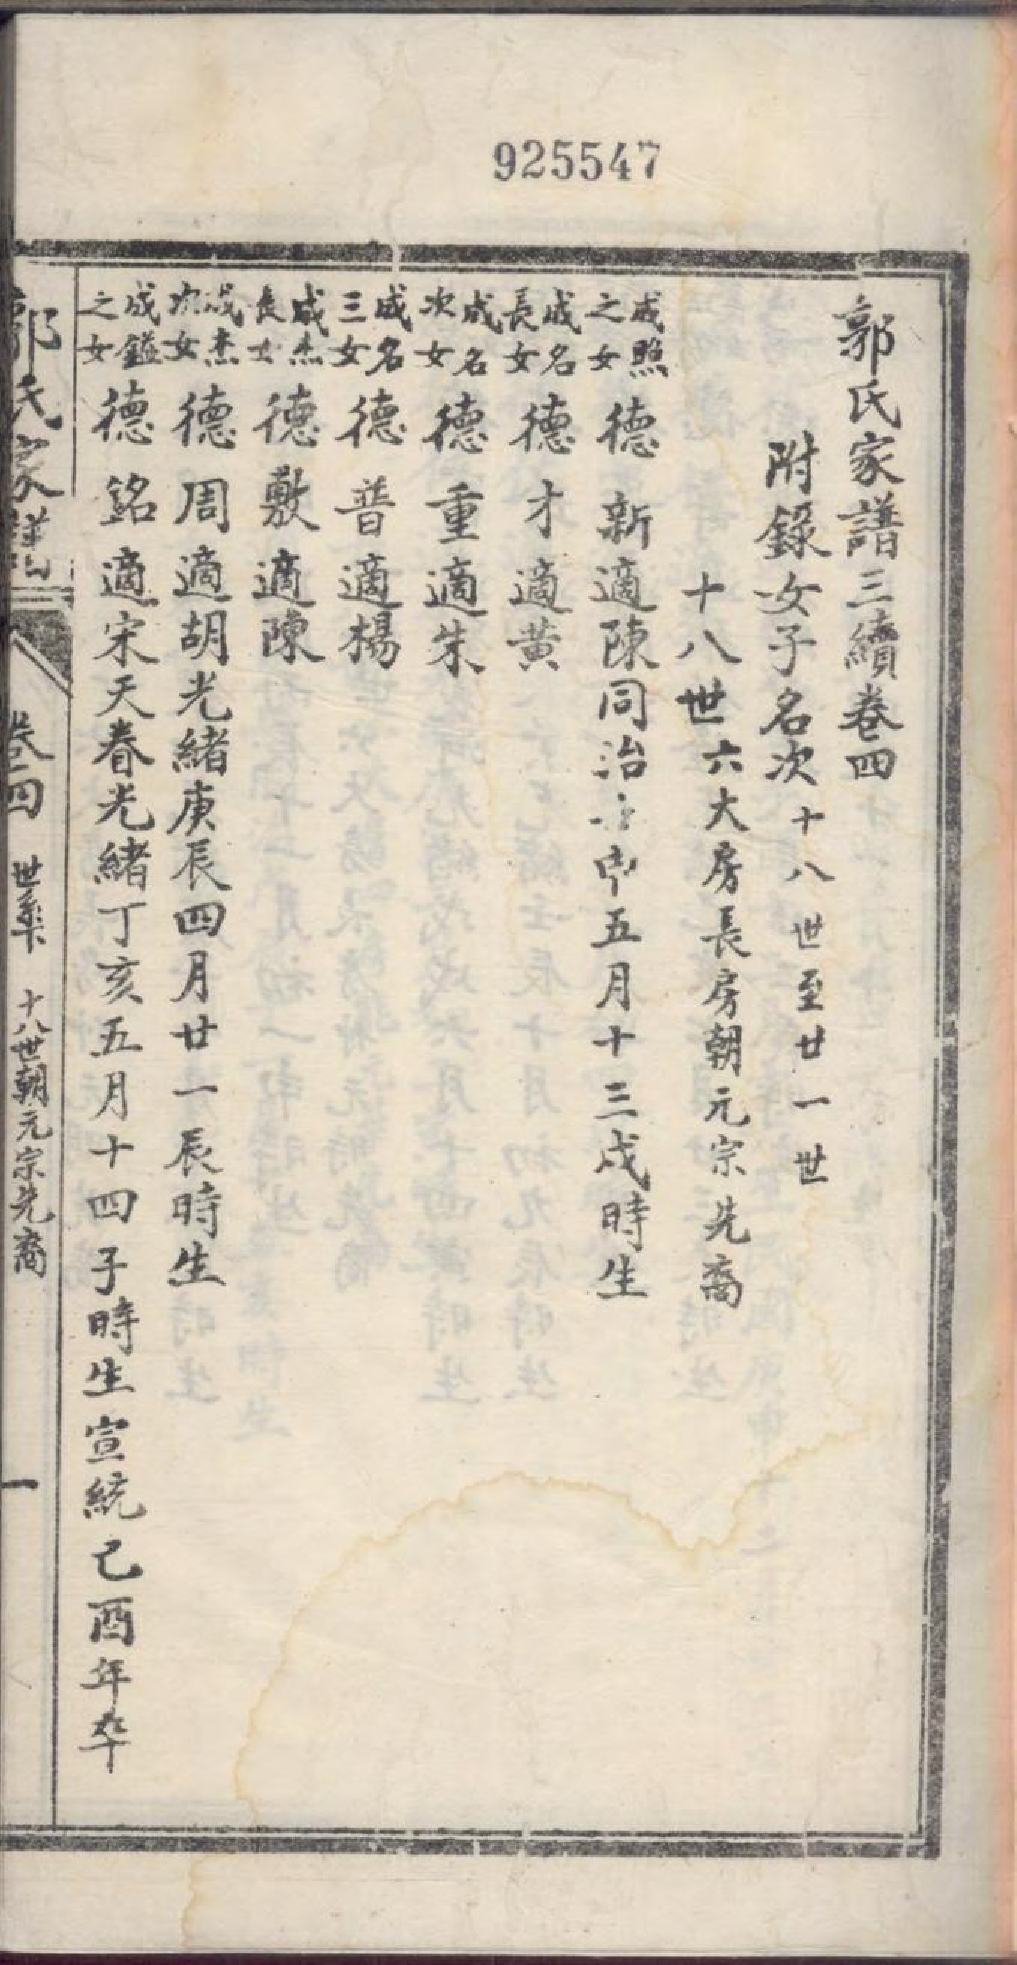 925547
郭氏家譜三續卷四
附錄女子名次十八世至廿一世
十八世六大房長房朝元宗先裔
成照之女德新適陳同治申五月十三戌時生
成名長女德才適黃
成名次女德重適朱
成名三女德普適楊
成杰長女德敷適陳
成杰次女德周適胡光緒庚辰四月廿一辰時生
成鎰之女德銘適宋天眷光緒丁亥五月十四子時生宣統己酉年卒
郭氏家譜 卷四 世系下 十八世朝元宗先裔 一